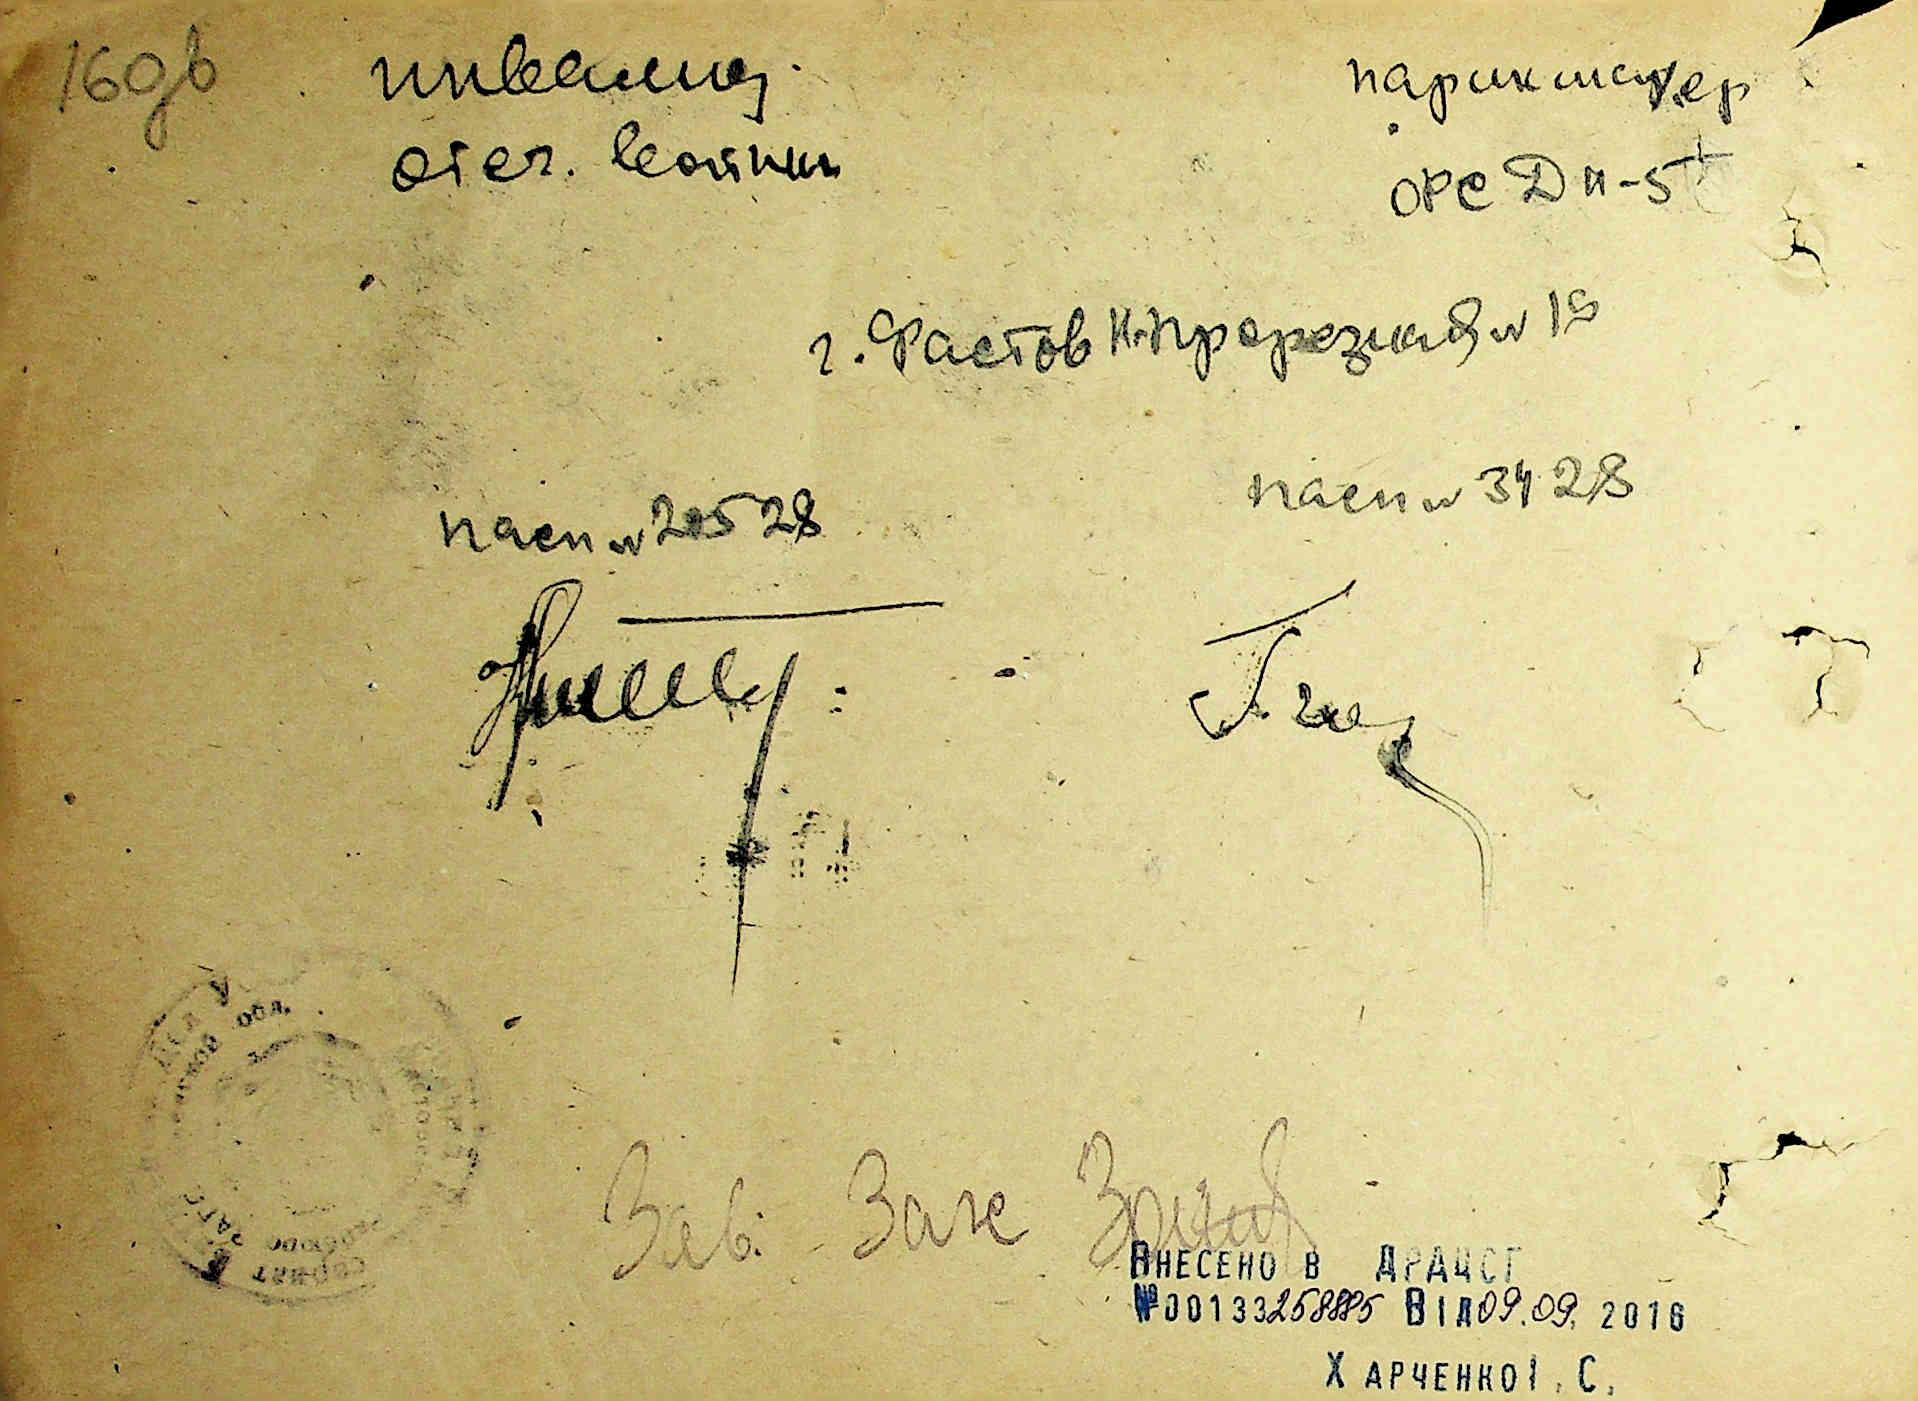 160 зв
инвалид
отеч. войни
парикмахер
ОРС ДН-5
г. Фастов Н-Прорезная № 19
пасп № 20528
пасп № 3428
обл.
ЗАГС
Зав. Загс
ВНЕСЕНО В ДРАЦСГ
№00133258885 ВІД 09.09. 2016
ХАРЧЕНКО І. С.